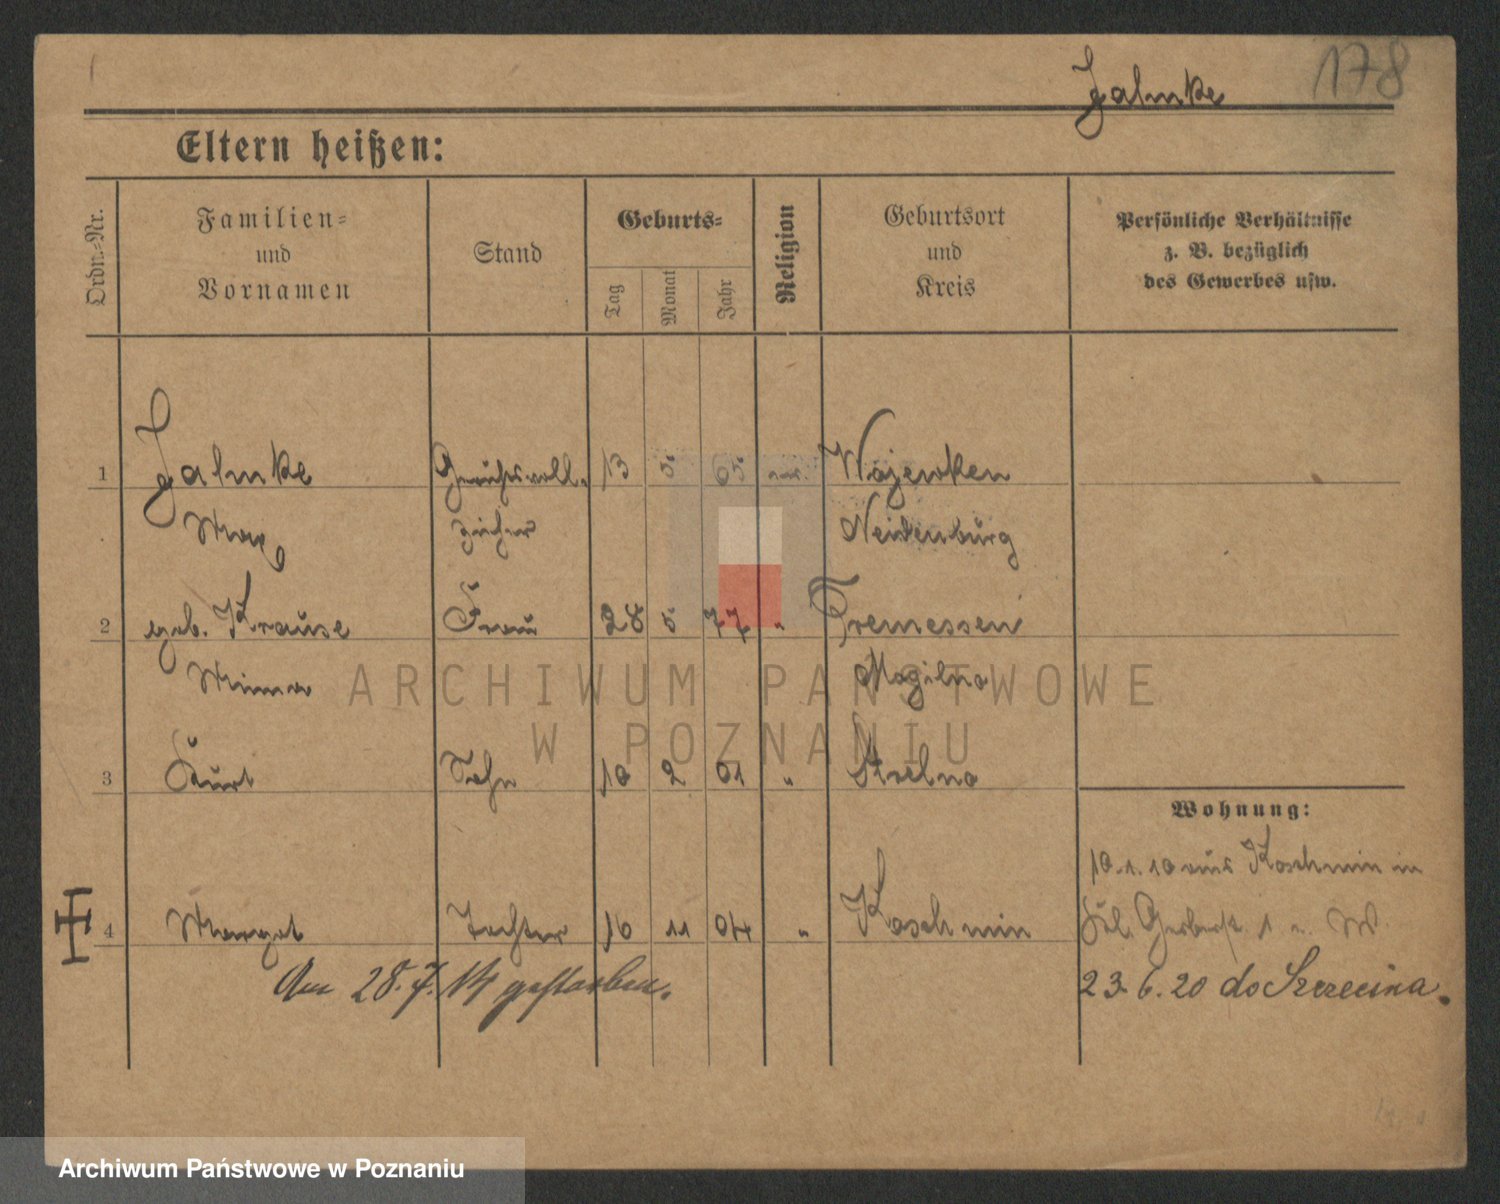 Jahnke 178
Eltern heißen:
Ordn.-Nr.
Familien-
und
Vornamen
Stand
Geburts-
Tag
Monat
Jahr
Religion
Geburtsort
und
Kreis
Persönliche Verhältnisse
z. B. bezüglich
des Gewerbes usw.
1 Jahnke Gerichtsvoll- 13 5 65 ev. Wajewken
Max zieher Neidenburg
2 geb. Krause Frau 28 5 77 " Tremessen
Minna Mogilno
ARCHIWUM PAŃSTWOWE
W POZNANIU
3 Kurt Sohn 10 2 01 " Strelno
Wohnung:
10.1.10 aus Koschmin in
4 Margot Tochter 16 11 04 " Koschmin
1 W.
Am 28.7.14 gestorben.
23.6.20 do Szczecina.
Archiwum Państwowe w Poznaniu